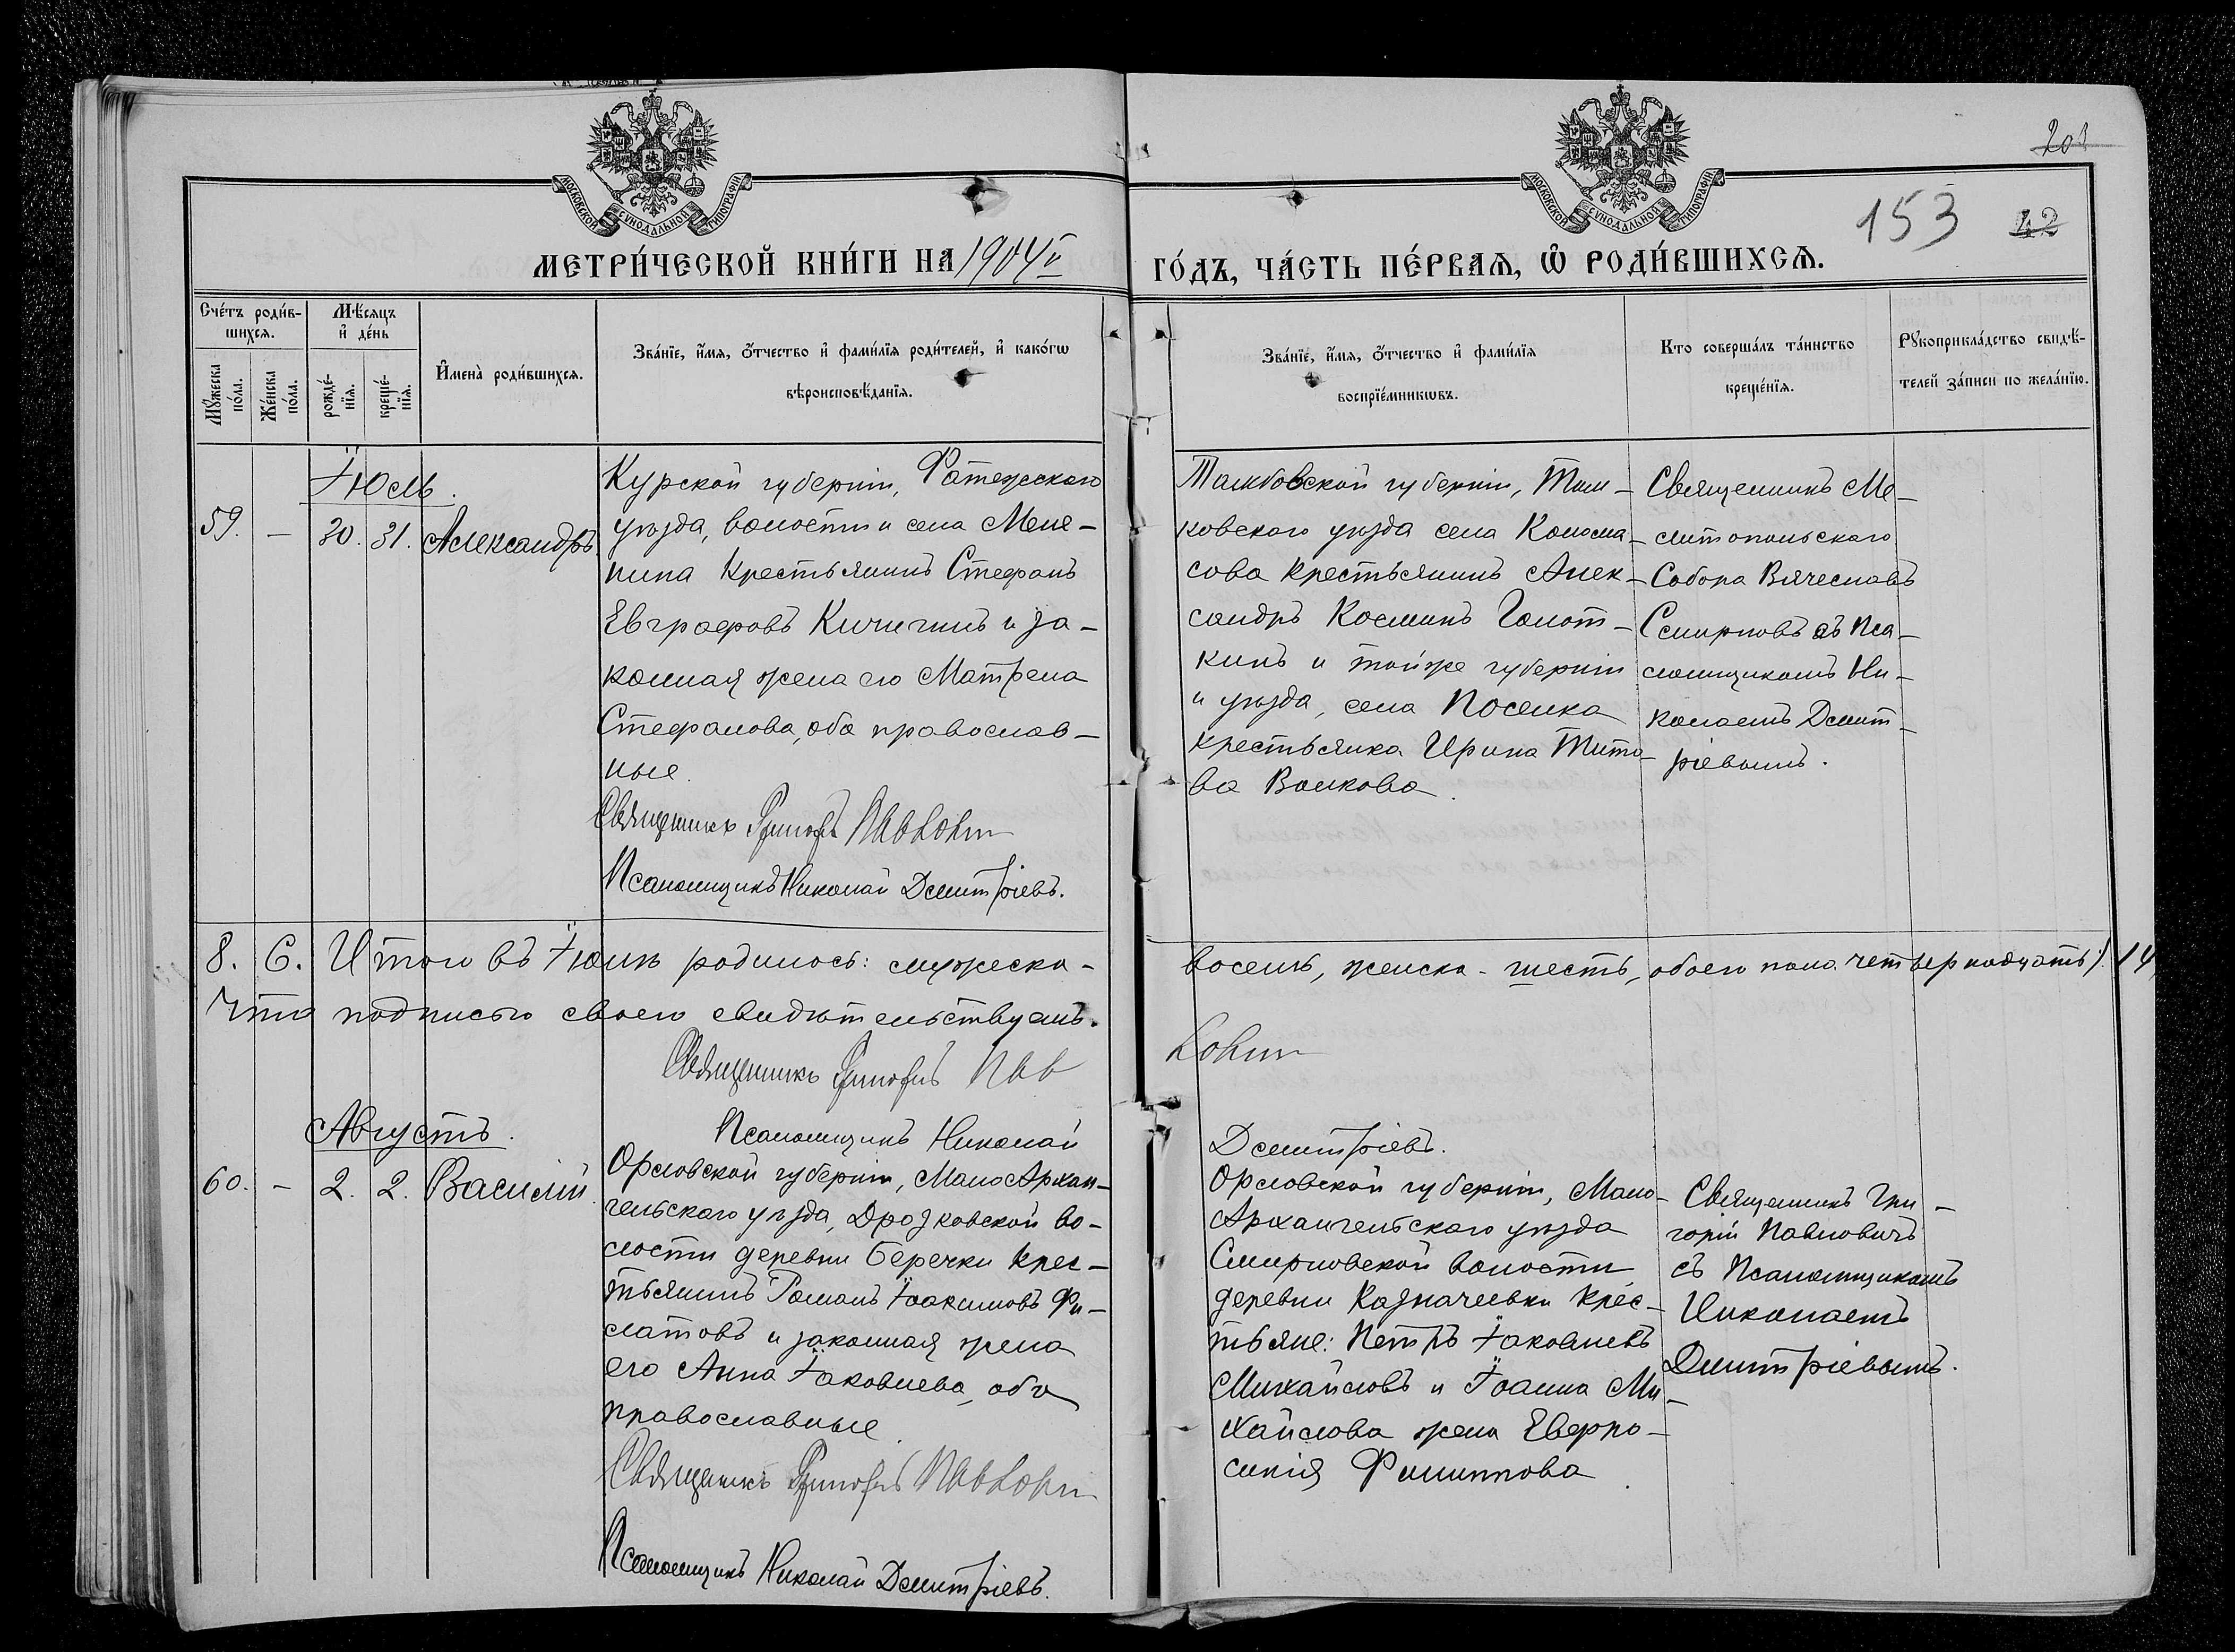 203
153 42
МОСКОВСКОЙ СУНОДАЛЬНОЙ ТИПОГРАФІИ
МОСКОВСКОЙ СУНОДАЛЬНОЙ ТИПОГРАФІИ
МЕТРИ́ЧЕСКОЙ КНИ́ГИ НА 1904й ГО́ДЪ, ЧА́СТЬ ПЕ́РВАѦ, Ѡ҆ РОДИ́ВШИХСѦ.
Сче́тъ роди́в-
шихсѧ.
Мꙋ́жеска по́ла.
Же́нска по́ла.
Мѣ́сяцъ
и҆ де́нь
рожде́-
нїѧ.
креще́-
нїѧ.
И҆мена̀ роди́вшихсѧ.
Зва́нїе, и҆́мѧ, ѻ҆́тчество и҆ фами́лїѧ роди́телей, и҆ како́гѡ
вѣроисповѣ́данїѧ.
Зва́нїе, и҆́мѧ, ѻ҆́тчество и҆ фами́лїѧ
воспрїе́мникѡвъ.
Кто соверша́лъ та́инство
креще́нїѧ.
Рꙋкоприкла́дство свидѣ́-
телей за́писи по жела́нїю.
Іюль.
59. - 30. 31. Александръ
Курской губерніи, Фатежского
уѣзда, волости и села Меле-
нина крестьянинъ Стефанъ
Евграфовъ Кичигинъ и за-
конная жена его Матрена
Стефанова, оба православ-
ные.
Священникъ Григорій Павловичъ
Псаломщикъ Николай Дмитріевъ.
Тамбовской губерніи, Там-
ковского уѣзда села Колома-
сова крестьянинъ Алек-
сандръ Косминъ Голот-
кинъ и тойже губерніи
и уѣзда, села Поселка
крестьянка Ирина Тито-
ва Волкова.
Священникъ Ме-
литопольскаго
Собора Вячеславъ
Смирновъ съ Пса-
ломщикомъ Ни-
колаемъ Дмит-
ріевымъ.
8. 6. Итого въ Іюлѣ родилось: мужеска - восемь, женска - шесть, обоего пола четырнадцать). 14
Что подписью своею свидѣтельствуемъ.
Священникъ Григорій Павловичъ
Псаломщикъ Николай Дмитріевъ.
Августъ.
60. - 2. 2. Василій.
Орловской губерніи, МалоАрхан-
гельскаго уѣзда, Дросковской во-
лости деревни Беречки крес-
тьянинъ Романъ Іоакимовъ Фи-
латовъ и законная жена
его Анна Іаковлева, оба
православные.
Священникъ Григорій Павловичъ
Псаломщикъ Николай Дмитріевъ.
Орловской губерніи, Мало-
Архангельскаго уѣзда
Смирновской волости
деревни Казначеевки крес-
тьяне: Петръ Іаковлевъ
Михайловъ и Іоанна Ми-
хайлова жена Евфро-
синія Филиппова.
Священникъ Гри-
горій Павловичъ
съ Псаломщикомъ
Николаемъ
Дмитріевымъ.